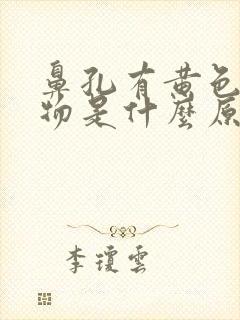 鼻孔有黄色
物是什麼原
李瓊雲